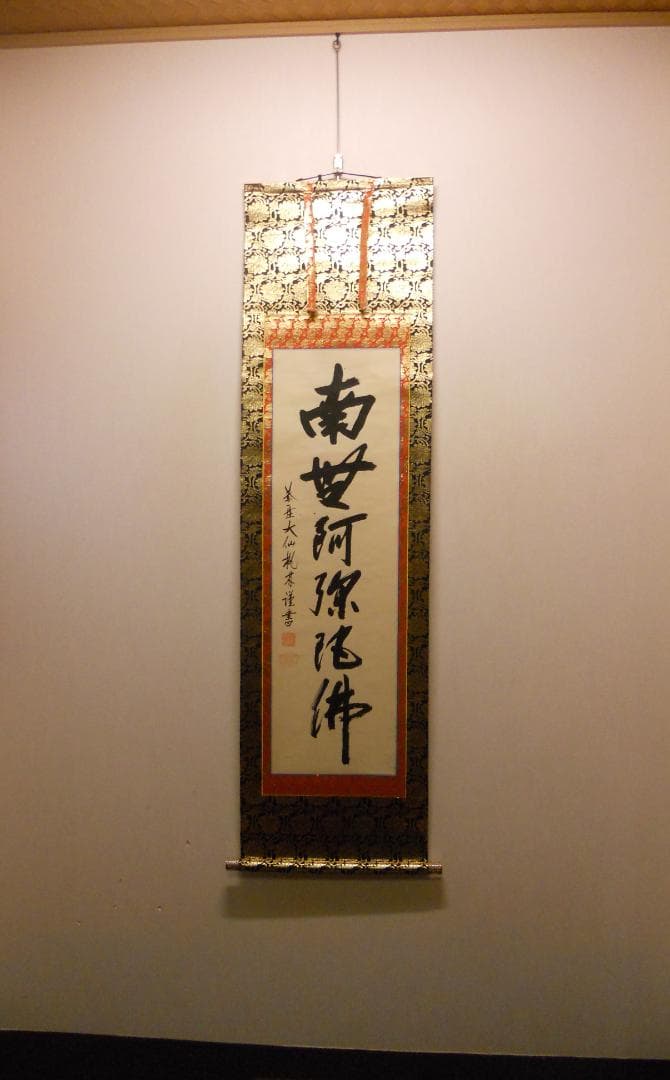 南無阿弥陀佛
大仙
謹書